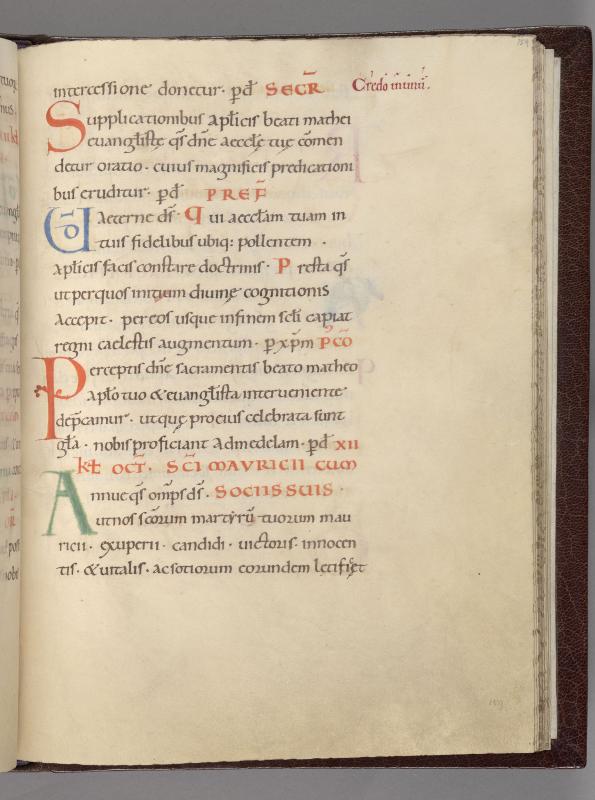 intercessione donetur · p̄d̄ SECR̄ Credo in unū.
Supplicationibus apłicis beati mathei
euangłistę qs̄ dn̄e aecclę tuę cōmen
detur oratio · cuius magnificis predicationi
bus eruditur · p̄d̄ PREF̄
UD̄ aeterne ds̄ · Qui aeccłam tuam in
tuis fidelibus ubiq: pollentem ·
apłicis facis constare doctrinis · Presta qs̄
ut per quos initium diuinę cognitionis
accepit · per eos usque in finem scłi capiat
regni caelestis augmentum · p xp̄m PCŌ
Perceptis dn̄e sacramentis beato matheo
apło tuo & euangłista interueniente
dep̄camur · ut quę pro eius celebrata sunt
gła · nobis proficiant ad medelam · p̄d̄ XII
kł OCT̄ · SCĪ MAURICII CUM
Annue qs̄ om̄ps ds̄ · SOCIIS SUIS ·
ut nos scōrum martyrū tuorum mau
ricii · exuperii · candidi · uictoris · innocen
tis · & uitalis · ac sotiorum eorundem lętifięt